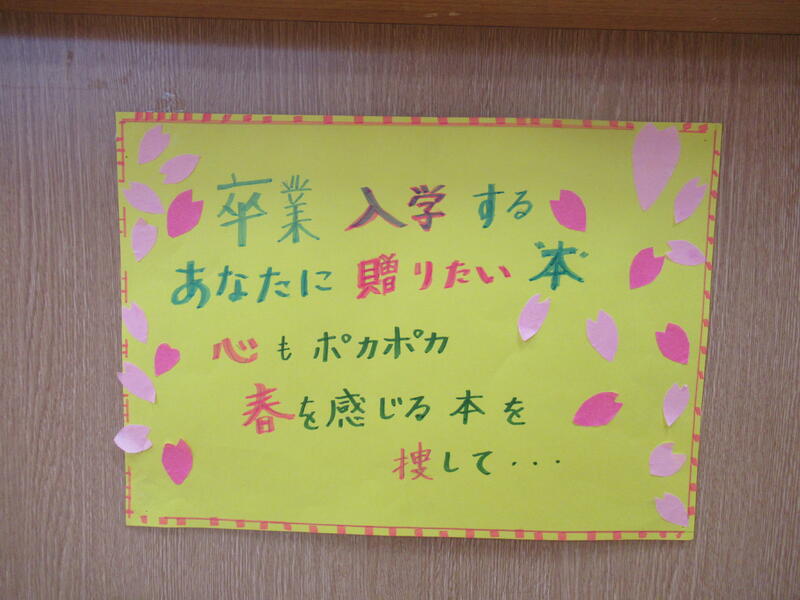 卒業 入学 する
あなたに 贈りたい "本"
心も ポカポカ
春を感じる 本を
捜して・・・